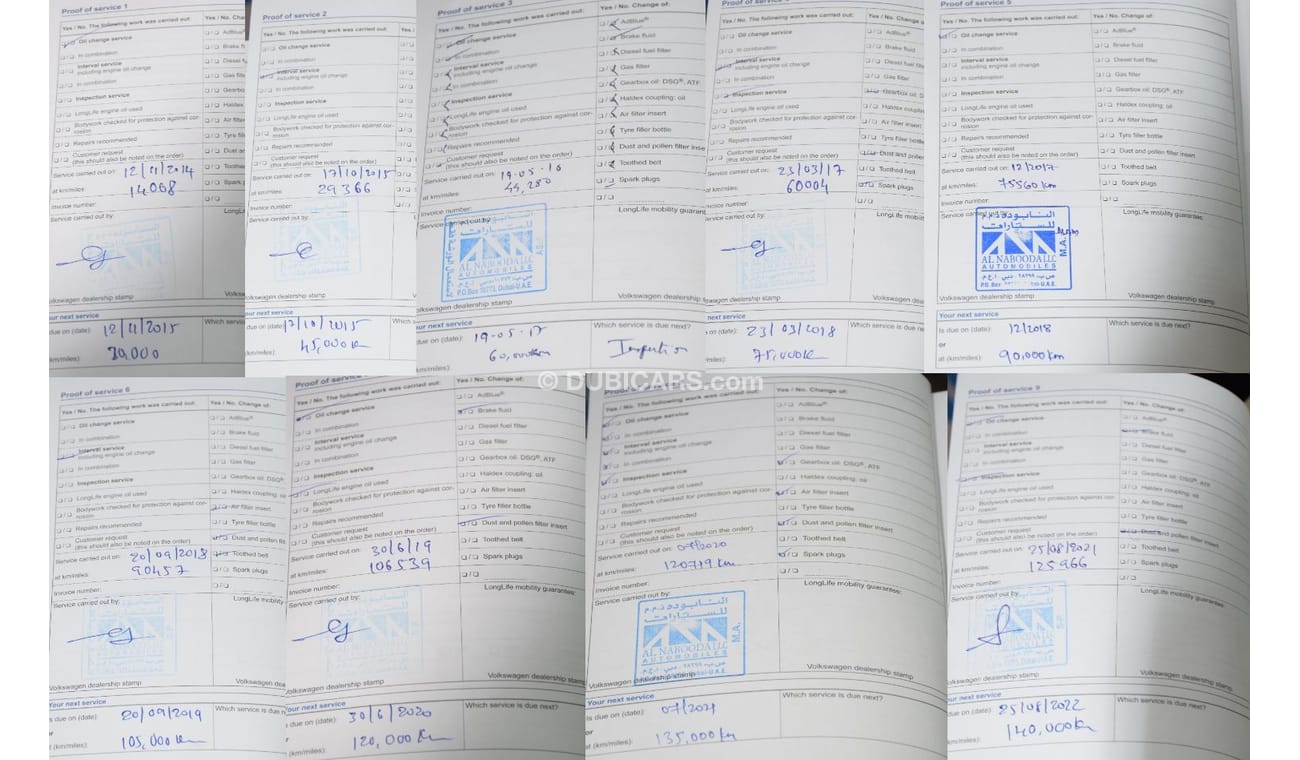 Proof of service 1
Yes / No. The following work was carried out:
Yes / No. Cha
Oil change service
AdBlue
In combination
Brake fl
Interval service
including engine oil change
Diesel fu
In combination
Gas filte
Inspection service
Gearbo
LongLife engine oil used
Haldex
Bodywork checked for protection against cor-
rosion
Air filter
Repairs recommended
Tyre fill
Customer request
(this should also be noted on the order)
Dust an
Service carried out on: 12/11/2014
Toothe
at km/miles: 14068
Spark p
Invoice number:
Service carried out by:
LongL
Volkswagen dealership stamp
Volks
our next service
due on (date): 12/11/2015
Which servic
km/miles)
Proof of service 2
Yes / No. The following work was carried out:
Yes /
Oil change service
In combination
Interval service
including engine oil change
In combination
Inspection service
LongLife engine oil used
Bodywork checked for protection against cor-
rosion
Repairs recommended
Customer request
(this should also be noted on the order)
Service carried out on: 17/10/2015
at km/miles: 29366
Invoice number:
Service carried out by:
olkswagen dealership stamp
our next service
due on (date)
Which s
km/miles): 45,000km
Proof of service 3
Yes / No. The following work was carried out:
Yes / No. Change of:
Oil change service
AdBlue®
In combination
Brake fluid
Interval service
including engine oil change
Diesel fuel filter
In combination
Gas filter
Inspection service
Gearbox oil: DSG®, ATF
LongLife engine oil used
Haldex coupling: oil
Bodywork checked for protection against cor-
rosion
Air filter insert
Repairs recommended
Tyre filler bottle
Customer request
(this should also be noted on the order)
Dust and pollen filter inse
Service carried out on: 19.05.16
Toothed belt
at km/miles: 45,280
Spark plugs
Invoice number:
LongLife mobility guarant
Service carried out by:
النابوده ذ.م.م
للسيارات
AL NABOODA LLC
AUTOMOBILES
Dubai-U.A.E.
Volkswagen dealership stamp
Volkswagen dealership s
our next service
due on (date): 19.05.17
Which service is due next?
60,000km
Inspection
Yes / No. The following work was carried out:
Yes / No. Change
Oil change service
AdBlue®
In combination
Brake fluid
Interval service
including engine oil change
Diesel fuel filt
In combination
Gas filter
Inspection service
Gearbox oil: D
LongLife engine oil used
Haldex couplin
Bodywork checked for protection against cor-
rosion
Air filter insert
Repairs recommended
Tyre filler bottle
Customer request
(this should also be noted on the order)
Dust and pollen
Service carried out on: 23/03/17
Toothed belt
at km/miles: 60004
Spark plugs
Invoice number:
LongLife mobili
ervice carried out by:
swagen dealership stamp
Volkswagen dea
next service
on (date): 23/03/2018
Which service is due ne
miles): 75,000km
Proof of service 5
Yes / No. The following work was carried out:
Yes / No. Change of:
Oil change service
AdBlue®
In combination
Brake fluid
Interval service
including engine oil change
Diesel fuel filter
In combination
Gas filter
Inspection service
Gearbox oil: DSG®, ATF
LongLife engine oil used
Haldex coupling: oil
Bodywork checked for protection against cor-
rosion
Air filter insert
Repairs recommended
Tyre filler bottle
Customer request
(this should also be noted on the order)
Dust and pollen filter insert
Service carried out on: 12/2017
Toothed belt
at km/miles: 75560 km
Spark plugs
Invoice number:
LongLife mobility guarantee:
Service carried out by:
النابوده ذ.م.م
للسيارات
AL NABOODA LLC
AUTOMOBILES
M.A.
P.O. Box Dubai-U.A.E.
Volkswagen dealership stamp
Volkswagen dealership stamp
Your next service
Is due on (date): 12/2018
Which service is due next?
or
at (km/miles): 90,000km
© DUBICARS.com
Proof of service 6
Yes / No. The following work was carried out:
Yes / No. Change of:
Oil change service
AdBlue®
In combination
Brake fluid
Interval service
including engine oil change
Diesel fuel filter
In combination
Gas filter
Inspection service
Gearbox oil: DSG®
LongLife engine oil used
Haldex coupling: oi
Bodywork checked for protection against cor-
rosion
Air filter insert
Repairs recommended
Tyre filler bottle
Customer request
(this should also be noted on the order)
Dust and pollen fil
Service carried out on: 20/09/2018
Toothed belt
at km/miles: 90457
Spark plugs
Invoice number:
Service carried out by:
LongLife mobility
Volkswagen dealership stamp
Volkswagen dea
Your next service
s due on (date): 20/09/2019
Which service is due n
(km/miles): 105,000 km
Proof of service
Yes / No. The following work was carried out:
Yes / No. Change of:
Oil change service
Brake fluid
In combination
Diesel fuel filter
Interval service
including engine oil change
Gas filter
In combination
Gearbox oil: DSG®, ATF
Inspection service
Haldex coupling: oil
LongLife engine oil used
Air filter insert
Bodywork checked for protection against cor-
rosion
Tyre filler bottle
Repairs recommended
Dust and pollen filter insert
Customer request
(this should also be noted on the order)
Toothed belt
Service carried out on: 30/6/19
Spark plugs
at km/miles: 106539
Invoice number:
LongLife mobility guarantee:
Service carried out by:
Volkswagen dealership stamp
Volkswagen dealership stamp
Your next service
due on (date): 30/6/2020
Which service is due next?
(km/miles): 120,000 km
Yes / No. The following work was carried out:
Yes / No. Change of:
Oil change service
AdBlue®
In combination
Brake fluid
Interval service
including engine oil change
Diesel fuel filter
In combination
Gas filter
Inspection service
Gearbox oil: DSG®, ATF
LongLife engine oil used
Haldex coupling: oil
Bodywork checked for protection against cor-
rosion
Air filter insert
Repairs recommended
Tyre filler bottle
Customer request
(this should also be noted on the order)
Dust and pollen filter insert
Service carried out on: 07/2020
Toothed belt
at km/miles: 120719 km
Spark plugs
Invoice number:
LongLife mobility guarantee:
Service carried out by:
النابوده ذ.م.م
للسيارات
AL NABOODA LLC
AUTOMOBILES
M.A.
Volkswagen dealership stamp
Volkswagen dealership stamp
Your next service
is due on (date): 07/2021
Which service is due next?
or
at (km/miles): 135,000 km
Proof of service 9
Yes / No. The following work was carried out:
Yes / No. Change of:
Oil change service
AdBlue®
In combination
Brake fluid
Interval service
including engine oil change
Diesel fuel filter
In combination
Gas filter
Inspection service
Gearbox oil: DSG®, ATF
LongLife engine oil used
Haldex coupling: oil
Bodywork checked for protection against cor-
rosion
Air filter insert
Repairs recommended
Tyre filler bottle
Customer request
(this should also be noted on the order)
Dust and pollen filter insert
Service carried out on: 25/08/2021
Toothed belt
at km/miles: 125966
Spark plugs
Invoice number:
LongLife mobility guarantee:
Service carried out by:
Volkswagen dealership stamp
Volkswagen dealership stamp
our next service
due on (date): 25/08/2022
Which service is due next?
km/miles): 140,000km